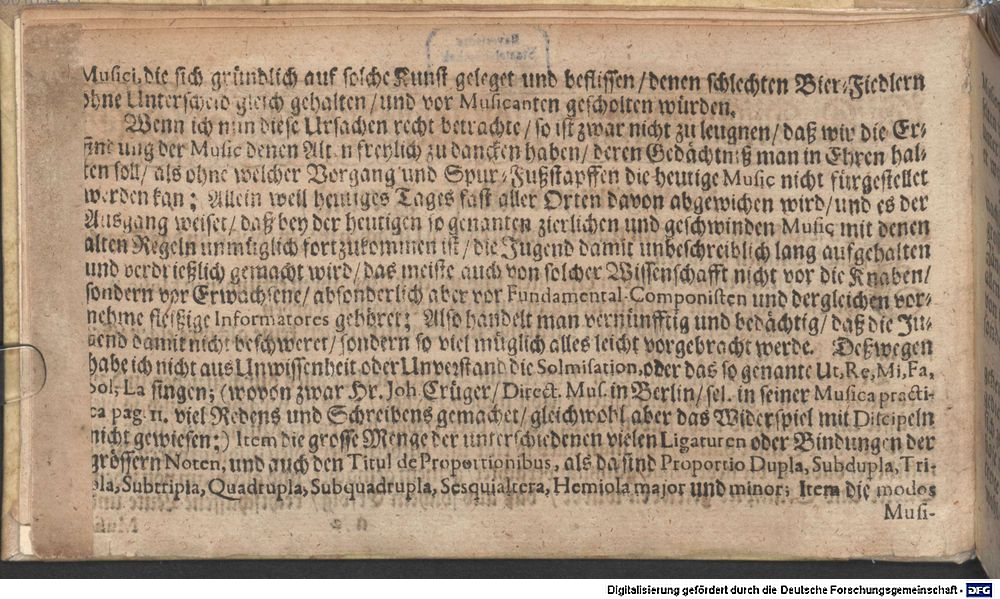 Musici, die sich gründlich auf solche Kunst geleget und beflissen/denen schlechten Bier-Fiedlern
ohne Unterscheid gleich gehalten/und vor Musicanten gescholten würden.
Wenn ich nun diese Ursachen recht betrachte/so ist zwar nicht zu leugnen/daß wir die Er-
ung der Music denen Alten freylich zu dancken haben/deren Gedächtniß man in Ehren hal-
ten soll/als ohne welcher Vorgang und Spur-Fußstapffen die heutige Music nicht fürgestellet
werden kan; Allein weil heutiges Tages fast aller Orten davon abgewichen wird/und es der
Ausgang weiset/daß bey der heutigen so genanten zierlichen und geschwinden Music mit denen
alten Regeln unmüglich fortzukommen ist/die Jugend damit unbeschreiblich lang aufgehalten
und verdrießlich gemacht wird/das meiste auch von solcher Wissenschafft nicht vor die Knaben/
sondern vor Erwachsene/absonderlich aber vor Fundamental-Componisten und dergleichen vor-
nehme fleißige Informatores gehöret; Also handelt man vernünfftig und bedächtig/daß die Ju-
gend damit nicht beschweret/sondern so viel müglich alles leicht vorgebracht werde. Deßwegen
habe ich nicht aus Unwissenheit oder Unverstand die Solmisation, oder das so genante Ut, Re, Mi, Fa,
Sol, La singen; (wovon zwar Hr. Joh. Crüger/Direct. Mus. in Berlin/sel. in seiner Musica practi-
ca pag. 11. viel Redens und Schreibens gemachet/gleichwohl aber das Widerspiel mit Discipeln
nicht gewiesen:) Item die grosse Menge der unterschiedenen vielen Ligaturen oder Bindungen der
grössern Noten, und auch den Titul de Proportionibus, als da sind Proportio Dupla, Subdupla, Tri-
pla, Subtripla, Quadrupla, Subquadrupla, Sesquialtera, Hemiola major und minor; Item die modos
Musi-
Digitalisierung gefördert durch die Deutsche Forschungsgemeinschaft - DFG